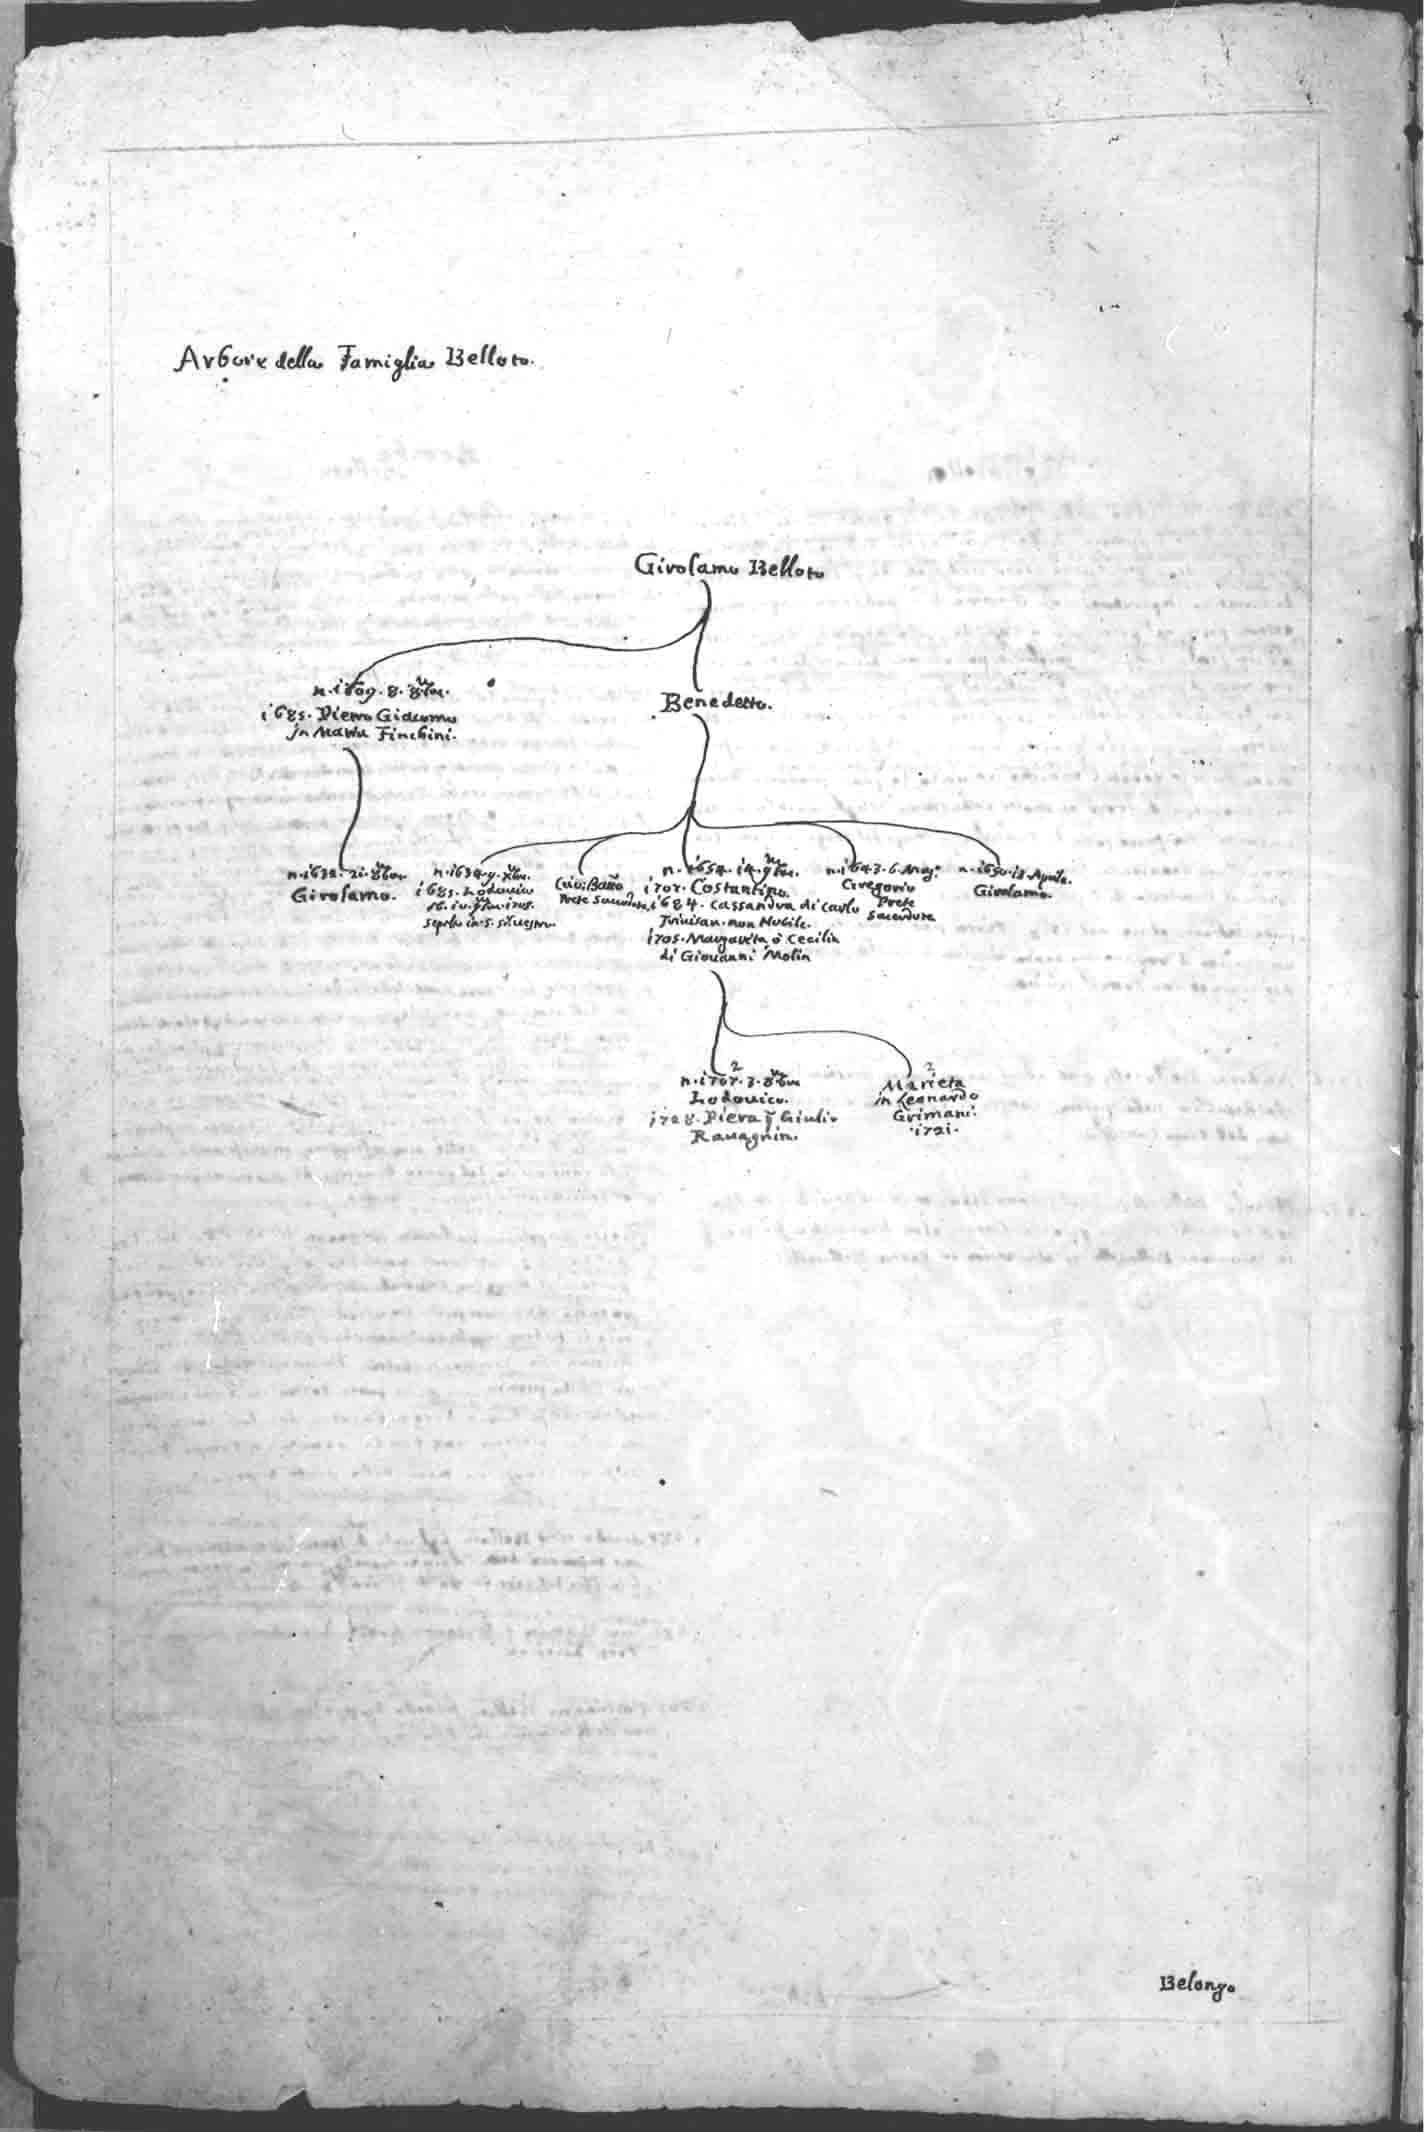 Arbore della Famiglia Belloto.
Girolamo Belloto
n. 1609. 8. 8bre.
1685. Piero Giacomo
in Maria Finchini.
Benedetto.
n. 1632. 21. 8bre
Girolamo.
n. 1634. 9. Xbre.
1685. Lodovico
sepolto in S. Silvestro.
Prete
n. 1654. 14. 9bre.
1707. Costantino.
1684. Cassandra di Carlo
Trivisan. non Nobile.
1705. Margarita ò Cecilia
di Giovanni Molin
n. 1643. 6. Mag:
Gregorio
Prete
Sacerdote
n. 1650. 13. Aprile.
Girolamo.
2
n. 1707. 3. 8bre
Lodovico.
1728. Piera Giulio
Ravagnin.
2
Marieta
in Leonardo
Grimani.
1721.
Belongo